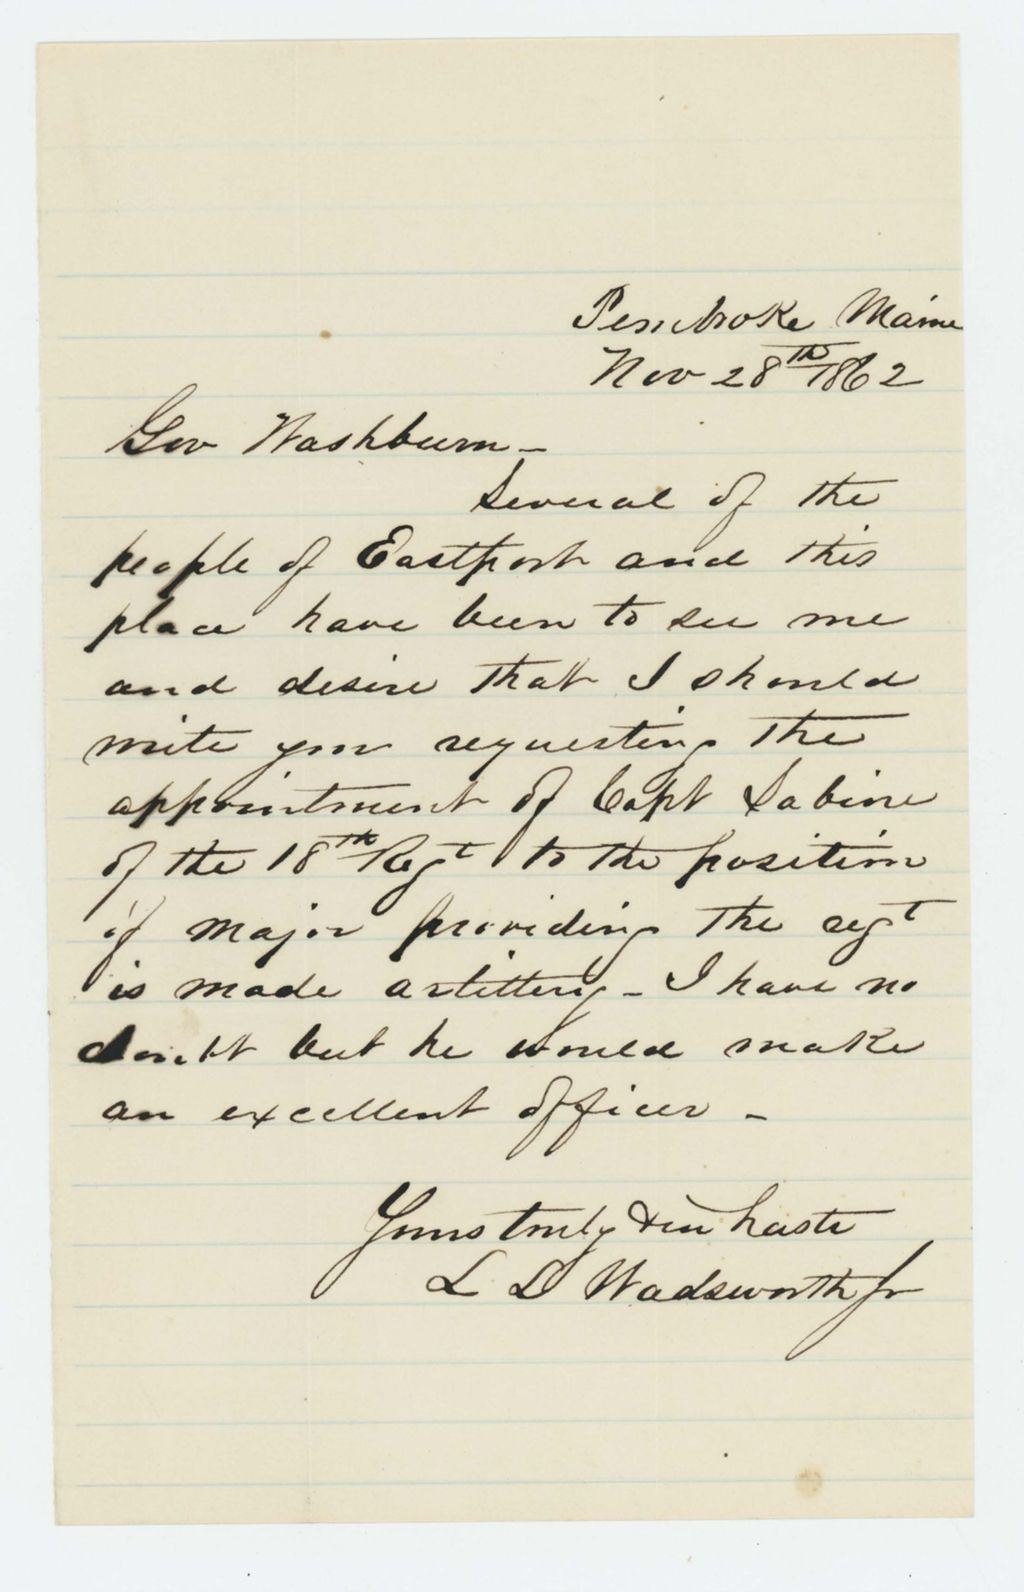 Pembroke Maine
Nov 28th 1862
Gov Washburn -
Several of the
people of Eastport and this
place have been to see me
and desire that I should
write you requesting the
appointment of Capt Sabine
of the 18th Regt to the position
of Major providing the regt
is made artillery - I have no
doubt but he would make
an excellent officer -
Yours truly & in haste
L D Wadsworth Jr